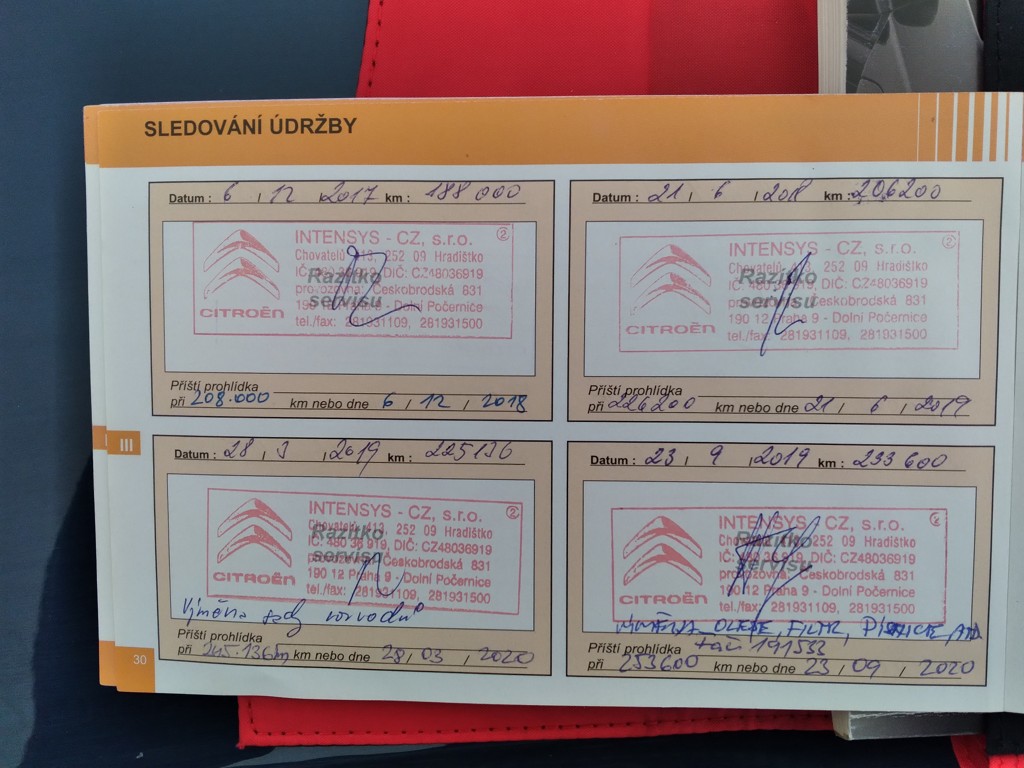 SLEDOVÁNÍ ÚDRŽBY
Datum : 6 / 12 / 2017 km : 188 000
INTENSYS - CZ, s.r.o. 2
Chovatelů 413, 252 09 Hradištko
IČ: 480 36 919, DIČ: CZ48036919
provozovna: Českobrodská 831
190 12 Praha 9 - Dolní Počernice
tel./fax: 281931109, 281931500
CITROËN
Razítko
servisu
Příští prohlídka
při 208.000 km nebo dne 6 / 12 / 2018
Datum : 21 / 6 / 2018 km : 206200
INTENSYS - CZ, s.r.o. 2
Chovatelů 413, 252 09 Hradištko
IČ: 480 36 919, DIČ: CZ48036919
provozovna: Českobrodská 831
190 12 Praha 9 - Dolní Počernice
tel./fax: 281931109, 281931500
CITROËN
Razítko
servisu
Příští prohlídka
při 226200 km nebo dne 21 / 6 / 2019
Datum : 28 / 3 / 2019 km : 225136
INTENSYS - CZ, s.r.o. 2
Chovatelů 413, 252 09 Hradištko
IČ: 480 36 919, DIČ: CZ48036919
provozovna: Českobrodská 831
190 12 Praha 9 - Dolní Počernice
tel./fax: 281931109, 281931500
CITROËN
Razítko
servisu
Výměna sady rozvodů
Příští prohlídka
při 245.136 km nebo dne 28 / 03 / 2020
Datum : 23 / 9 / 2019 km : 233 600
INTENSYS - CZ, s.r.o. 2
Chovatelů 413, 252 09 Hradištko
IČ: 480 36 919, DIČ: CZ48036919
provozovna: Českobrodská 831
190 12 Praha 9 - Dolní Počernice
tel./fax: 281931109, 281931500
CITROËN
Razítko
servisu
VÝMĚNA OLEJE, FILTR,
Příští prohlídka
při 253600 km nebo dne 23 / 09 / 2020
III
30